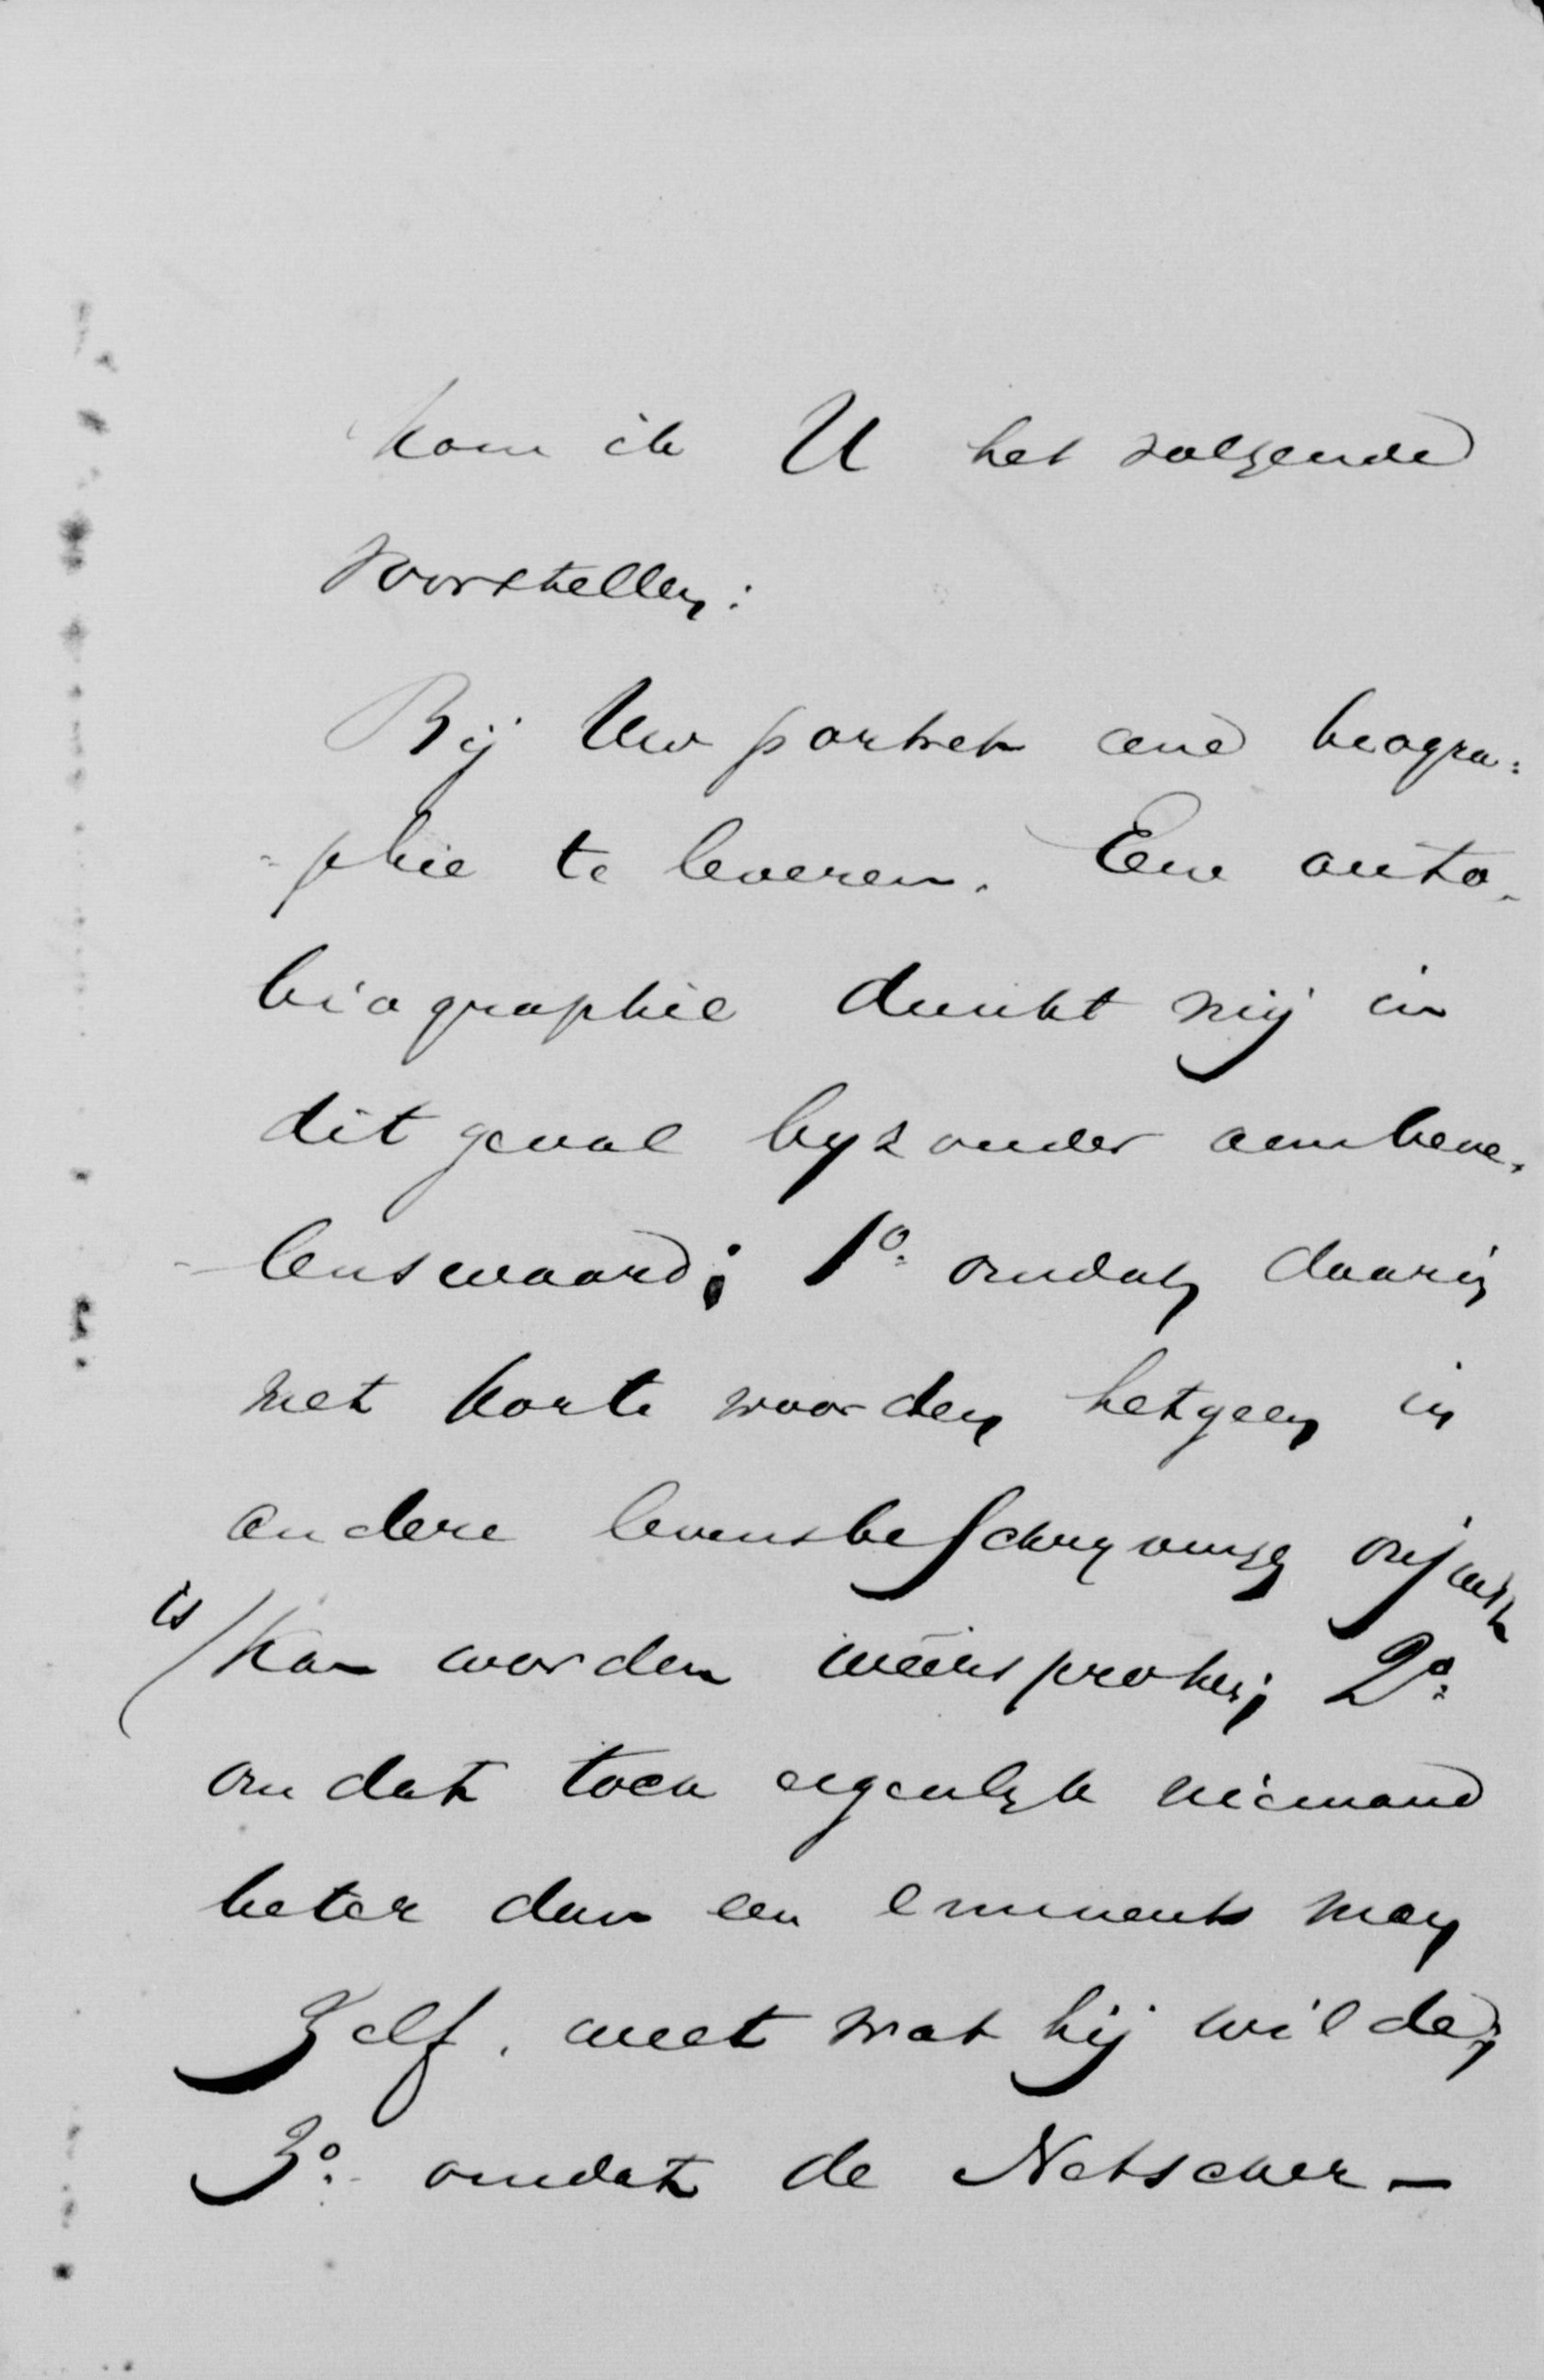 kom ik U het volgende
voorstellen:
Bij Uw portret eene biogra=
=phie te leveren. Eene auto-
biographie dunkt mij in
dit geval byzonder aanbeve-
-lenswaard; 1o. omdat daarin
met korte woorden hetgeen in
andere levensbeschryvingen onjuist
is/kan worden weersproken; 2o.
omdat toch eigenlyk niemand
beter dan een eminent man
zelf, weet wat hij wilde;
3o. omdat de Netscher-